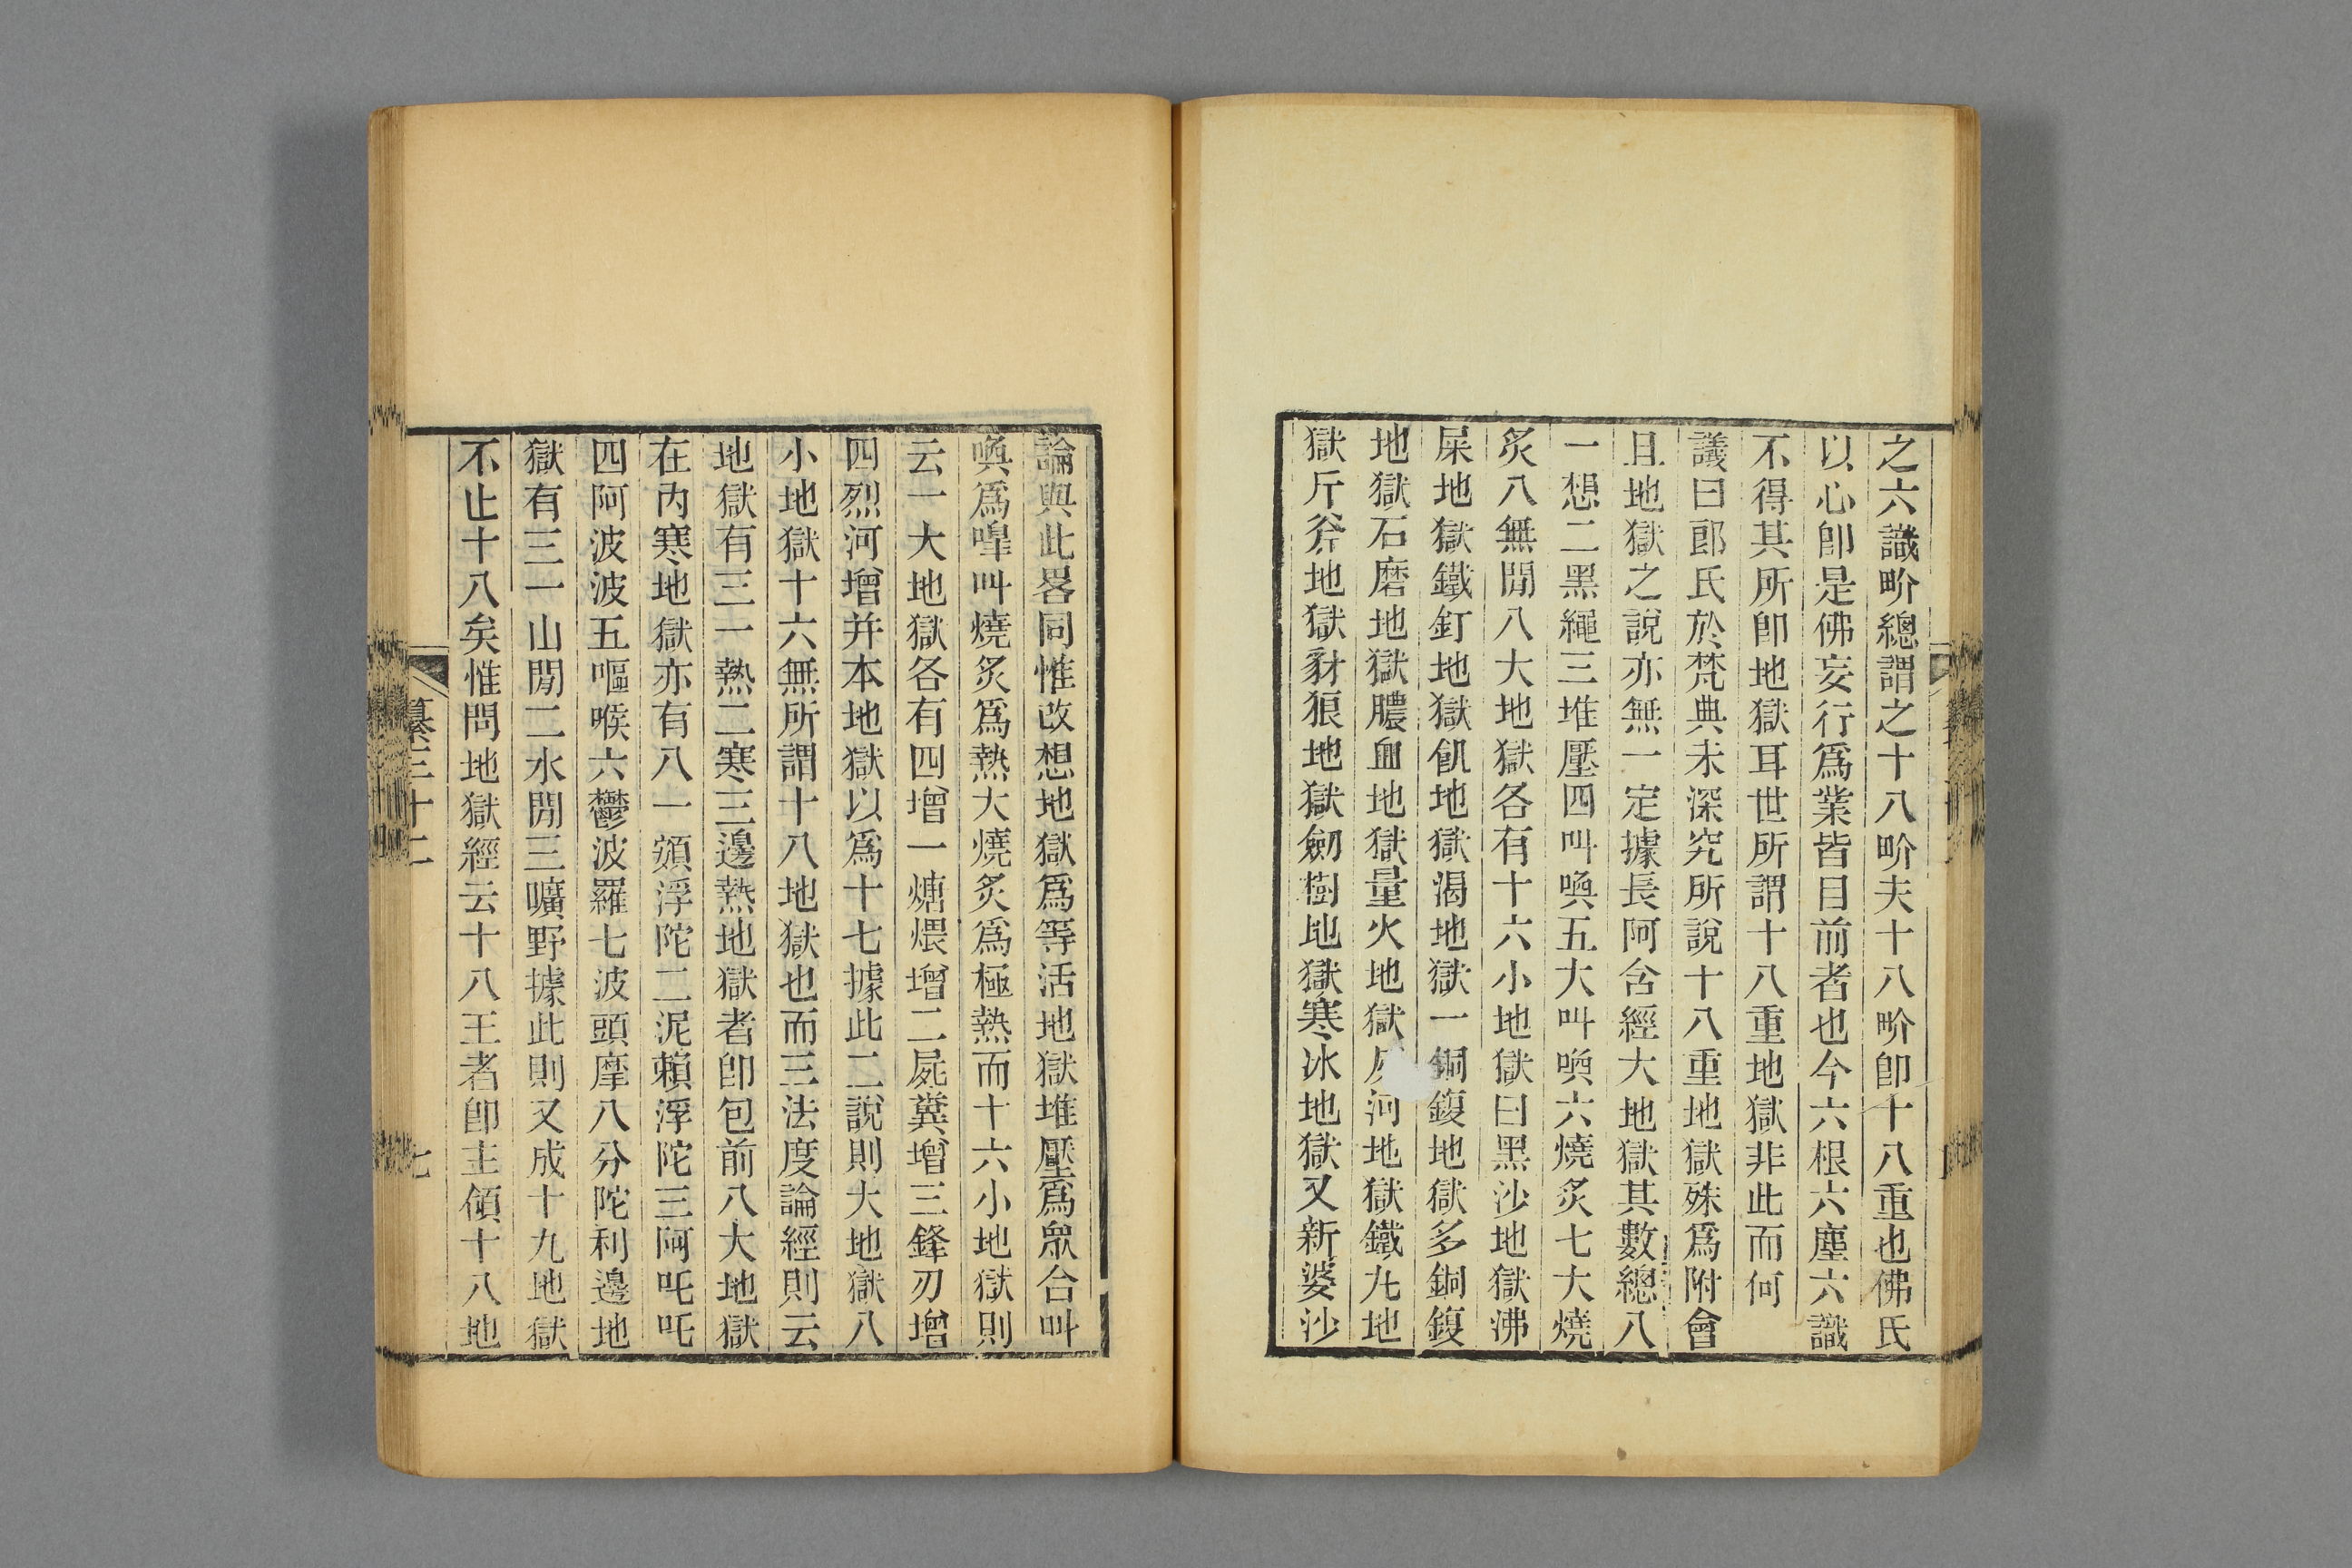 之六識畍總謂之十八畍夫十八畍卽十八重也佛氏
以心卽是佛妄行爲業皆目前者也今六根六塵六識
不得其所卽地獄耳世所謂十八重地獄非此而何
議曰郎氏於梵典未深究所說十八重地獄殊爲附會
且地獄之說亦無一定據長阿含經大地獄其數總八
一想二黑繩三堆壓四叫喚五大叫喚六燒炙七大燒
炙八無閒八大地獄各有十六小地獄曰黑沙地獄沸
屎地獄鐵釘地獄飢地獄渴地獄一銅鍑地獄多銅鍑
地獄石磨地獄膿血地獄量火地獄灰河地獄鐵丸地
獄斤斧地獄豺狼地獄劒樹地獄寒冰地獄又新婆沙
論與此畧同惟改想地獄爲等活地獄堆壓爲衆合叫
喚爲嘷叫燒炙爲熱大燒炙爲極熱而十六小地獄則
云一大地獄各有四增一煻煨增二屍糞增三鋒刃增
四烈河增并本地獄以爲十七據此二說則大地獄八
小地獄十六無所謂十八地獄也而三法度論經則云
地獄有三一熱二寒三邊熱地獄者卽包前八大地獄
在內寒地獄亦有八一頞浮陀二泥賴浮陀三阿吒吒
四阿波波五嘔喉六鬱波羅七波頭摩八分陀利邊地
獄有三一山閒二水閒三曠野據此則又成十九地獄
不止十八矣惟問地獄經云十八王者卽主領十八地
纂三十二
七